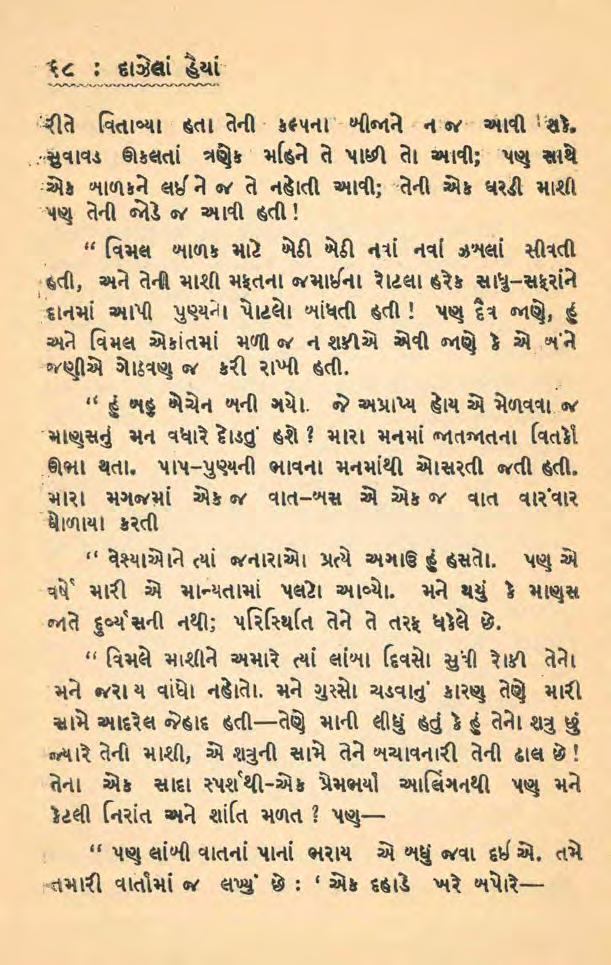 ૬૮ : દાઝેલાં હૈયાં
રીતે વિતાવ્યા હતા તેની કલ્પના બીજાને ન જ આવી શકે.
સુવાવડ ઊકલતાં ત્રણેક મહિને તે પાછી તો આવી; પણ સાથે
એક બાળકને લઈ ને જ તે નહોતી આવી; તેની એક ઘરડી માશી
પણ તેની જોડે જ આવી હતી!
“ વિમલ બાળક માટે બેઠી બેઠી નવાં નવાં ઝબલાં સીવતી
હતી, અને તેની માશી મફતના જમાઈના રોટલા હરેક સાધુ–સફરાંને
દાનમાં આપી પુણ્યનો પોટલો બાંધતી હતી! પણ દૈવ જાણે, હું
અને વિમલ એકાંતમાં મળી જ ન શકીએ એવી જાણે કે એ બંને
જણીએ ગોઠવણ જ કરી રાખી હતી.
“ હું બહુ બેચેન બની ગયો. જે અપ્રાપ્ય હોય એ મેળવવા જ
માણસનું મન વધારે દોડતું હશે ? મારા મનમાં જાતજાતના વિતર્કો
ઊભા થતા. પાપ–પુણ્યની ભાવના મનમાંથી ઓસરતી જતી હતી.
મારા મગજમાં એક જ વાત–બસ એ એક જ વાત વારંવાર
ઘોળાયા કરતી
“ વેશ્યાઓને ત્યાં જનારાઓ પ્રત્યે અગાઉ હું હસતો. પણ એ
વર્ષે મારી એ માન્યતામાં પલટો આવ્યો. મને થયું કે માણસ
જાતે દુર્વ્યસની નથી; પરિસ્થિતિ તેને તે તરફ ધકેલે છે.
“ વિમલે માશીને અમારે ત્યાં લાંબા દિવસો સુધી રોકી તેનો
મને જરા ય વાંધો નહોતો. મને ગુસ્સો ચડવાનું કારણ તેણે મારી
સામે આદરેલ જેહાદ હતી—તેણે માની લીધું હતું કે હું તેનો શત્રુ છું
જ્યારે તેની માશી, એ શત્રુની સામે તેને બચાવનારી તેની ઢાલ છે!
તેના એક સાદા સ્પર્શથી–એક પ્રેમભર્યા આલિંગનથી પણ મને
કેટલી નિરાંત અને શાંતિ મળત ? પણ—
“ પણ લાંબી વાતનાં પાનાં ભરાય એ બધું જવા દઈ એ. તમે
તમારી વાર્તામાં જ લખ્યું છે : ‘ એક દહાડે ખરે બપોરે—